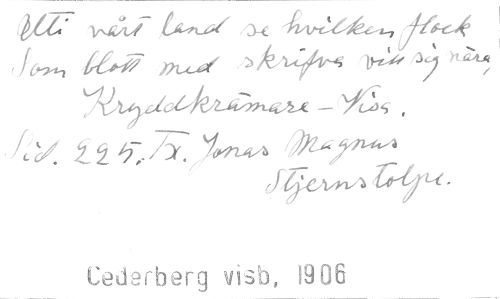 Uti vårt land se hvilken flock
Som blott med skrifva vill sig nära,
Kryddkrämare-Visa.
Sid. 225. Tx. Jonas Magnus
Stjernstolpe.
Cederberg visb, 1906